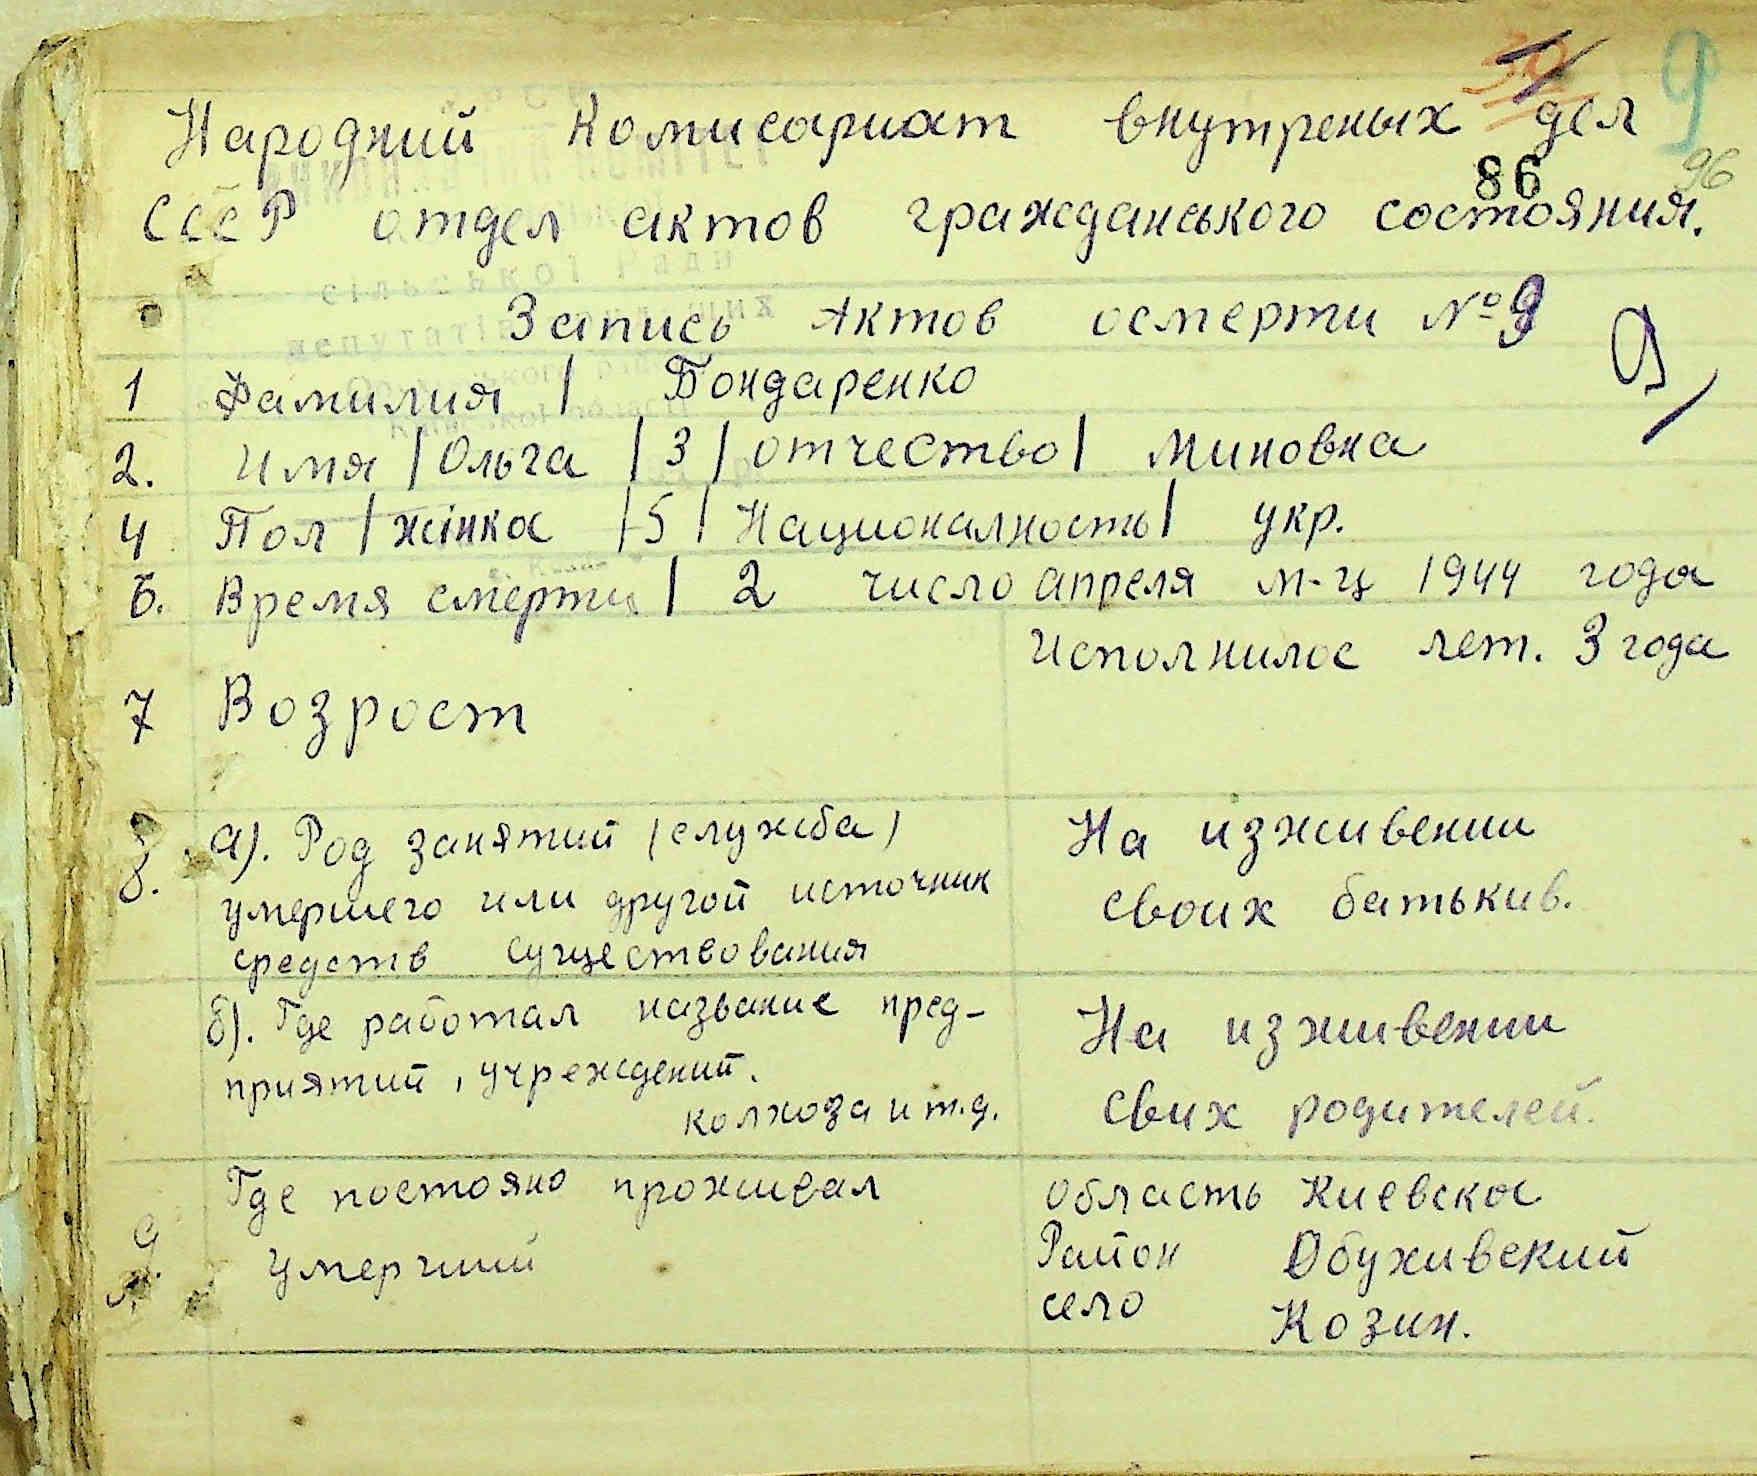 39 9
Народний Комисариат внутреных дел
86 96
СССР отдел актов гражданського состояния.
Запись Актов осмерти № 9
9
1 Фамилия / Бондаренко
2. Имя / Ольга / 3 / отчество / Миновна
4 Пол / жінка / 5 / Националность / укр.
6. Время смерти / 2 число апреля м-ц 1944 года
Исполнилос лет. 3 года
7 Возрост
8. а). Род занятий (служба)
умершего или другой источник
средств существования
На изживении
своих батькив.
б). Где работал название пред-
приятий, учреждений.
колхоза и т.д.
На изживении
Свих родителей.
9. Где постояно проживал
умерший
Область Киевска
Район Обухивский
село Козин.